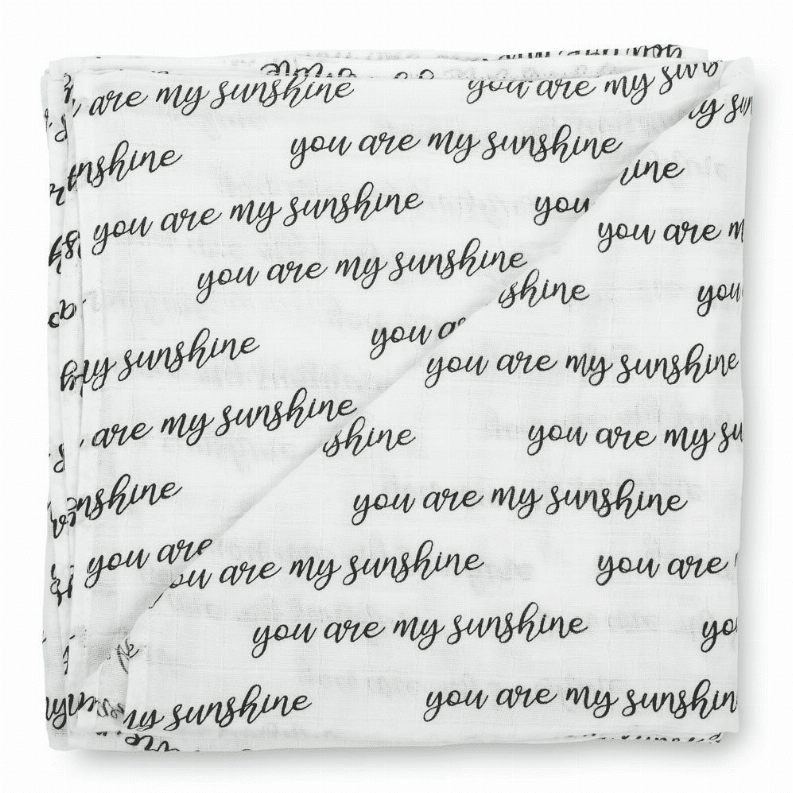 are my sunshine you are my
you are my sunshine
sunshine
you are my sunshine you
you are my
you are my sunshine
shine you
you are my sunshine
my sunshine
are my sunshine
shine you are my
you are my sunshine
you are
are my sunshine you are
you are my sunshine
my sunshine you are my